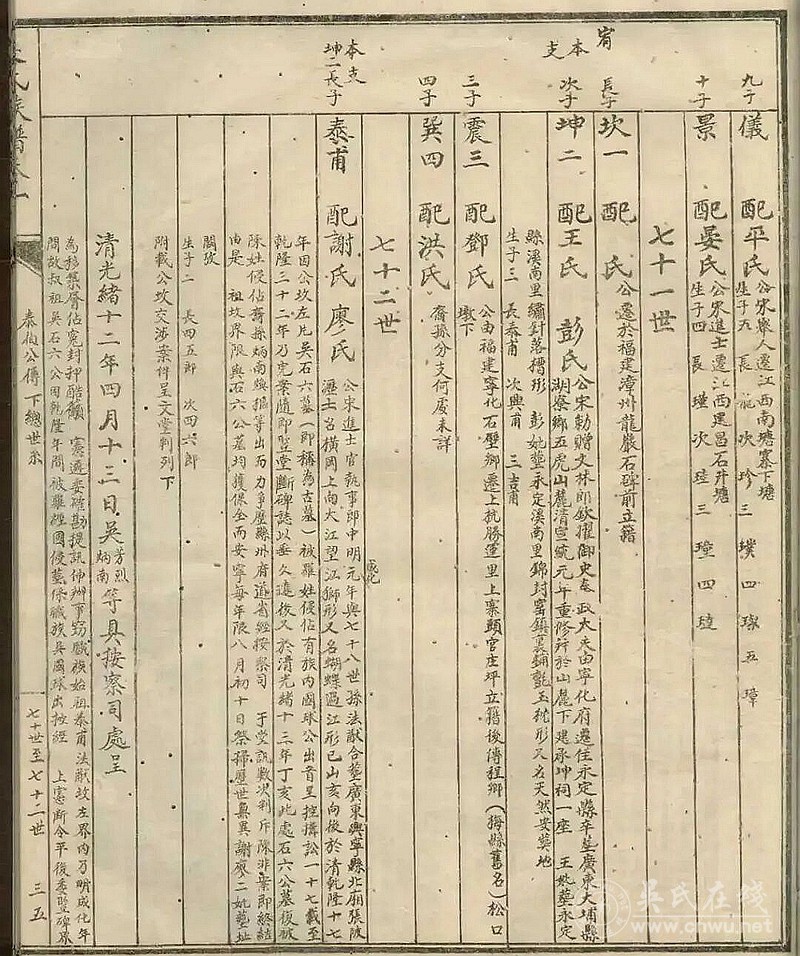 九子
儀 配平氏
公宋舉人遷江西南塘寨下塘
生子五 長龍 次珍 三璞 四琛 五璋
十子
景 配晏氏
公宋進士遷江西建昌石井塘
生子四 長瑾 次珪 三璋 四璉
七十一世
宥
長子
坎一 配 氏
公遷於福建漳州龍巖石碑前立籍
本支
次子
坤二 配王氏 彭氏
公宋勅贈文林郎欽擢御史奉政大夫由寧化府遷住永定縣卒葬廣東大埔縣
湖寮鄉五虎山麓清宣統元年重修并於山麓下建承坤祠一座 王妣葬永定
縣溪南里繡針落槽形 彭妣葬永定溪南里錦封窰鎮裏鋪氈玉枕形又名天然安葬地
生子三 長泰甫 次興甫 三吉甫
三子
震三 配鄧氏
公由福建寧化石壁鄉遷上杭勝運里上寨頭官庄坪立籍後傳程鄉(梅縣舊名)松口
墩下
四子
巽四 配洪氏
裔孫分支何處未詳
七十二世
本支
坤二長子
泰甫 配謝氏 廖氏
公宋進士官執事郎中明成化元年與七十八世孫法猷合葬廣東興寧縣北廂張陂
瀝土名橫岡上向大江望江獅形又名蝴蝶過江形巳山亥向後於清乾隆十七
年因公坎左片吳石六墓(即稱為古墓)被羅姓侵佔有族內國球公出首呈控搆訟一十七載至
乾隆三十二年乃完案隨即豎堂斷碑誌以垂久遠後又於清光緒十三年丁亥此處石六公墓復被
陳姓侵佔裔孫炳南煥樞等出而力爭歷縣州府道省經按察司 于堂訊數次判斥陳非業即終結
由是 祖坎界限與石六公墓均獲保全而安寧每年限八月初十日祭掃歷世無異謝廖二妣葬址
闕攷
生子二 長四五郎 次四六郎
附載公坎交涉案件呈文堂判列下
清光緒十二年四月十三日吳芳烈炳南等具按察司處呈
為移禁脣佔寃封押酷籲 憲遴委確勘提訊伸辦事竊職族始祖泰甫法猷故左界內乃明成化年
間故叔祖吳石六公因乾隆年間被羅經國侵葬係職族吳國球出控經 上憲斷令平後委豎碑界
泰伯公傳下總世系
七十世至七十二世
三五
吳氏在线
www.cnwu.net